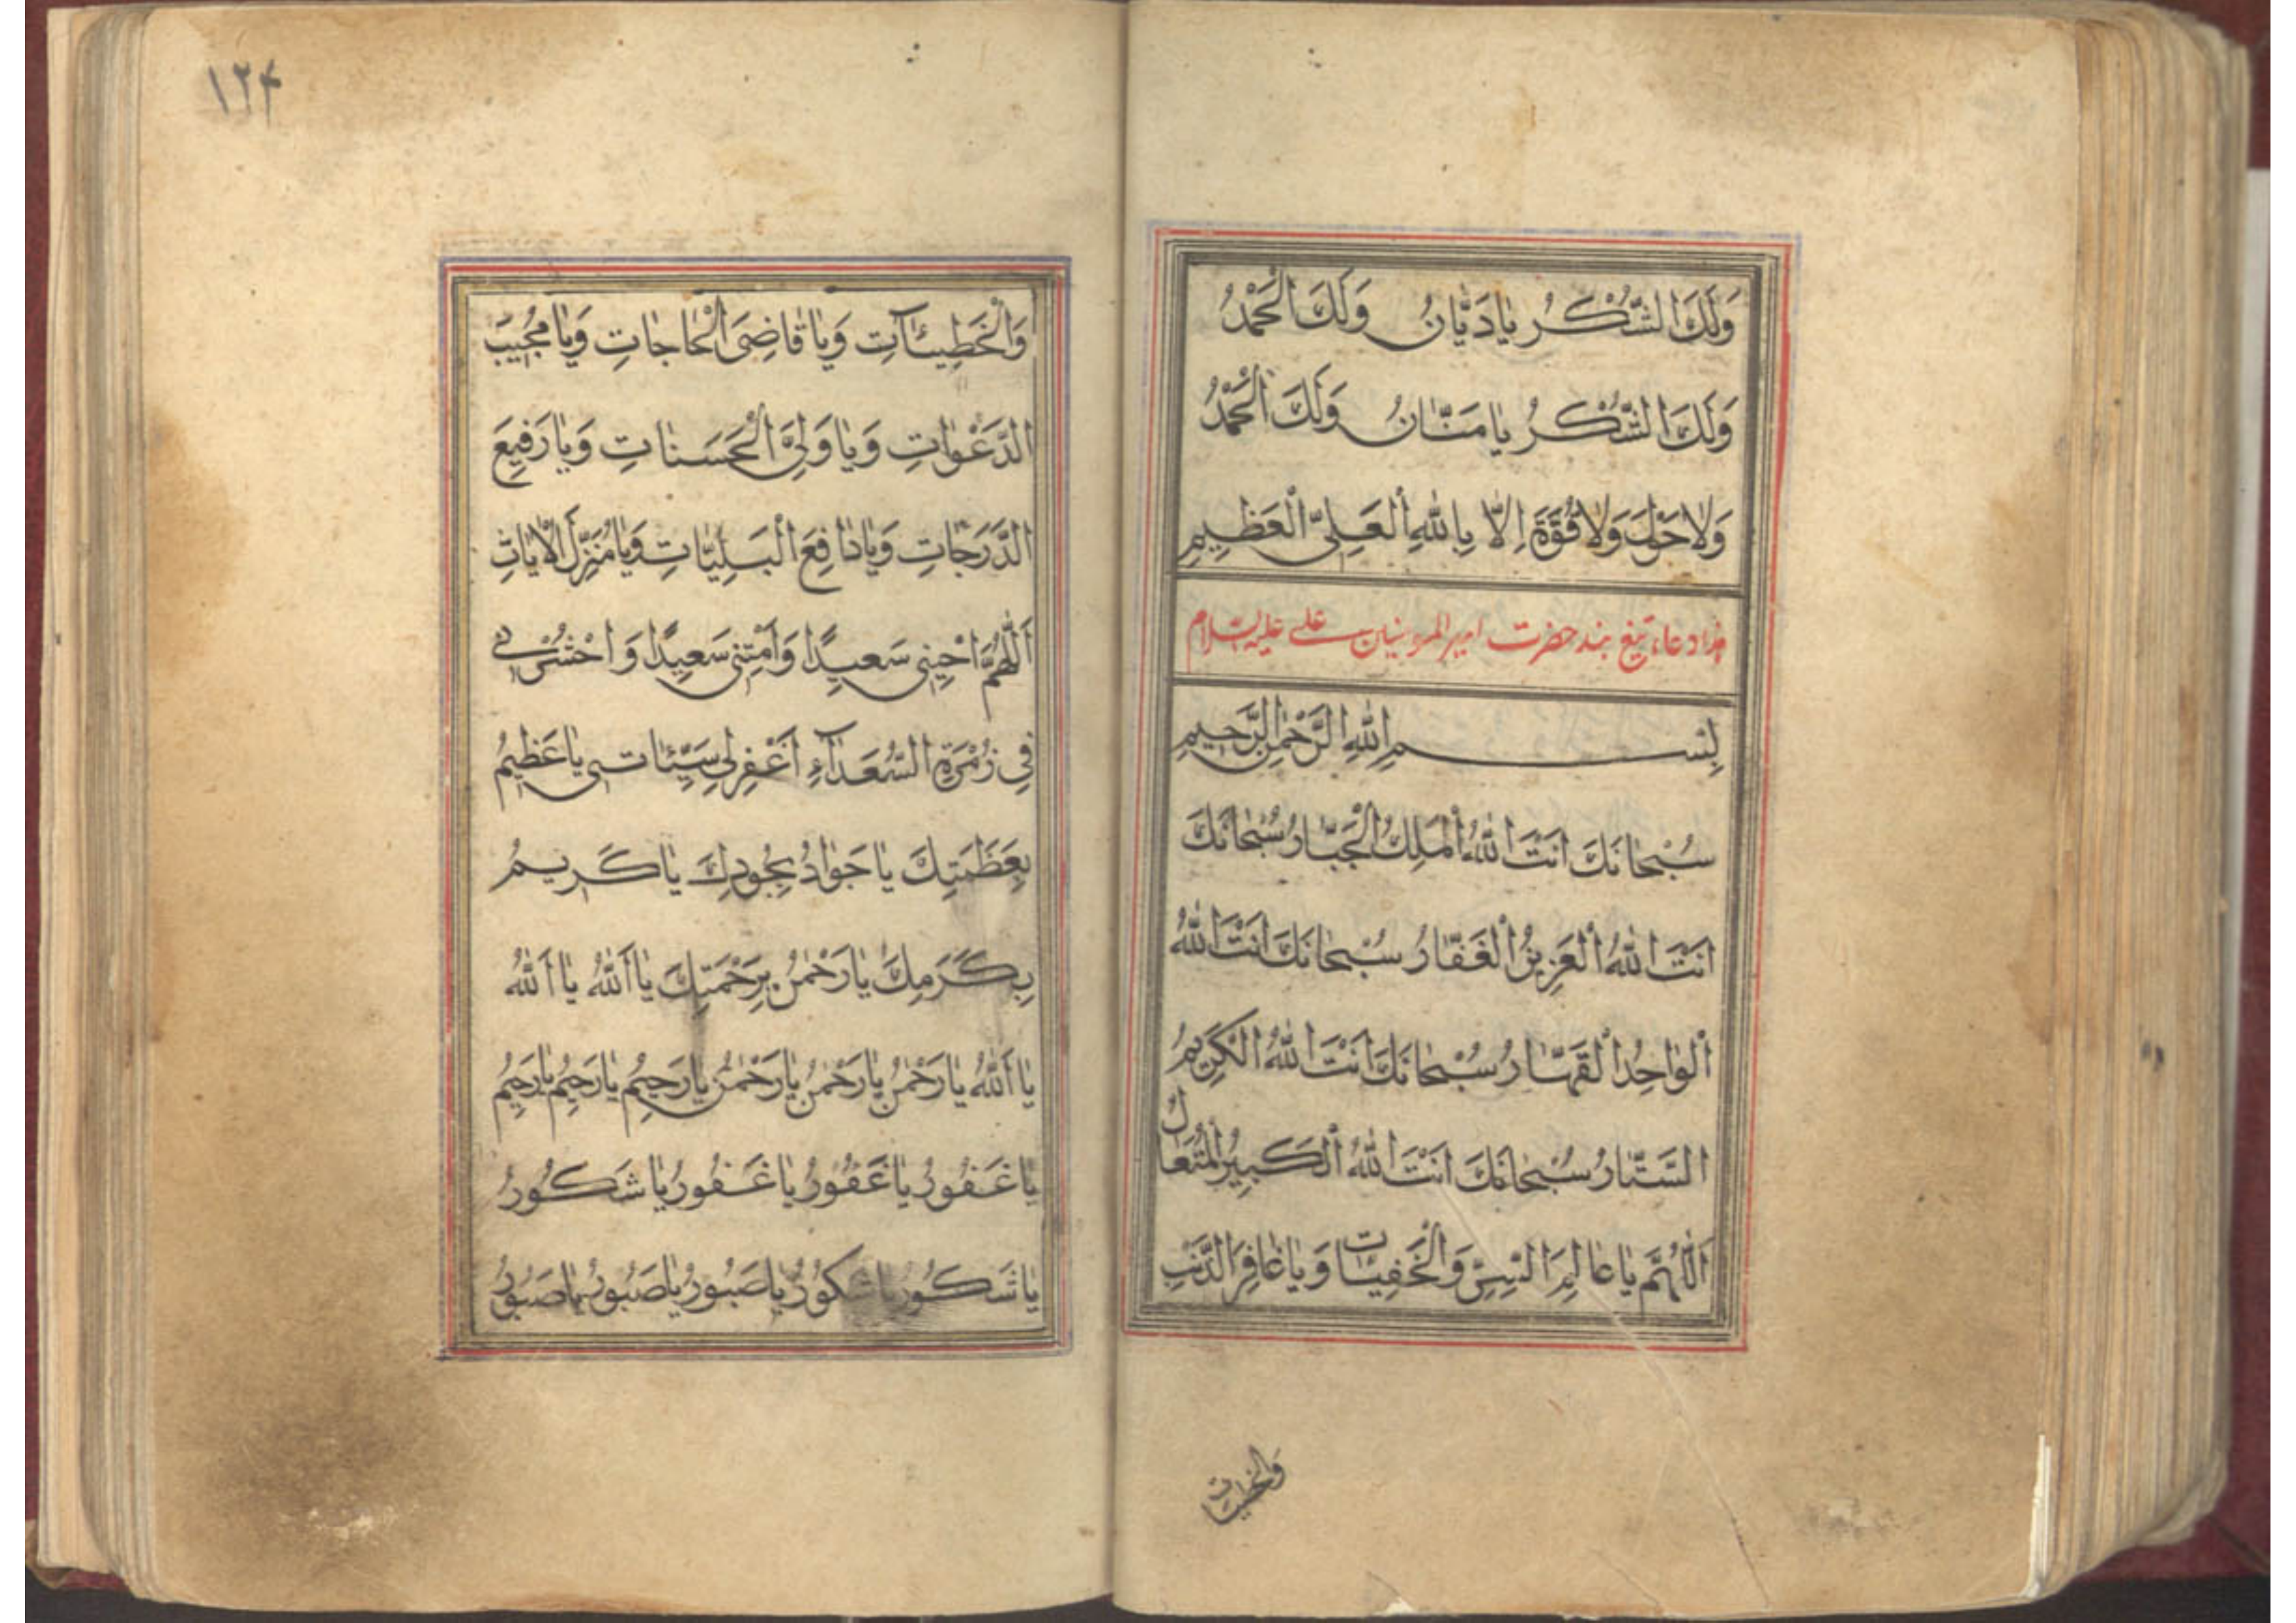 وَلَكَ الشُّكْرُ يَا دَيَّانُ وَلَكَ الْحَمْدُ
وَلَكَ الشُّكْرُ يَا مَنَّانُ وَلَكَ الْحَمْدُ
وَلَا حَوْلَ وَلَا قُوَّةَ اِلَّا بِاللّٰهِ الْعَلِىِّ الْعَظِيمِ
هذا دعاء تيغ بند حضرت امير المؤمنين على عليه السلام
بِسْمِ اللّٰهِ الرَّحْمٰنِ الرَّحِيمِ
سُبْحَانَكَ اَنْتَ اللّٰهُ الْمَلِكُ الْجَبَّارُ سُبْحَانَكَ
اَنْتَ اللّٰهُ الْعَزِيزُ الْغَفَّارُ سُبْحَانَكَ اَنْتَ اللّٰهُ
الْوَاحِدُ الْقَهَّارُ سُبْحَانَكَ اَنْتَ اللّٰهُ الْكَرِيمُ
السَّتَّارُ سُبْحَانَكَ اَنْتَ اللّٰهُ الْكَبِيرُ الْمُتَعَالُ
اَللّٰهُمَّ يَا عَالِمَ السِّرِّ وَالْخَفِيَّاتِ وَيَا غَافِرَ الذَّنْبِ
والخطيئات
١٢٤
وَالْخَطِيئَاتِ وَيَا قَاضِىَ الْحَاجَاتِ وَيَا مُجِيبَ
الدَّعَوَاتِ وَيَا وَلِىَّ الْحَسَنَاتِ وَيَا رَفِيعَ
الدَّرَجَاتِ وَيَا دَافِعَ الْبَلِيَّاتِ وَيَا مُنَزِّلَ الْاٰيَاتِ
اَللّٰهُمَّ احْيِنِى سَعِيدًا وَاَمِتْنِى سَعِيدًا وَاحْشُرْنِى
فِى زُمْرَةِ السُّعَدَاۤءِ اَغْفِرْ لِى سَيِّئَاتِى يَا عَظِيمُ
بِعَظَمَتِكَ يَا جَوَادُ بِجُودِكَ يَا كَرِيمُ
بِكَرَمِكَ يَا رَحْمٰنُ بِرَحْمَتِكَ يَا اَللّٰهُ يَا اَللّٰهُ
يَا اَللّٰهُ يَا رَحْمٰنُ يَا رَحْمٰنُ يَا رَحْمٰنُ يَا رَحِيمُ يَا رَحِيمُ يَا رَحِيمُ
يَا غَفُورُ يَا غَفُورُ يَا غَفُورُ يَا شَكُورُ
يَا شَكُورُ يَا شَكُورُ يَا صَبُورُ يَا صَبُورُ يَا صَبُورُ